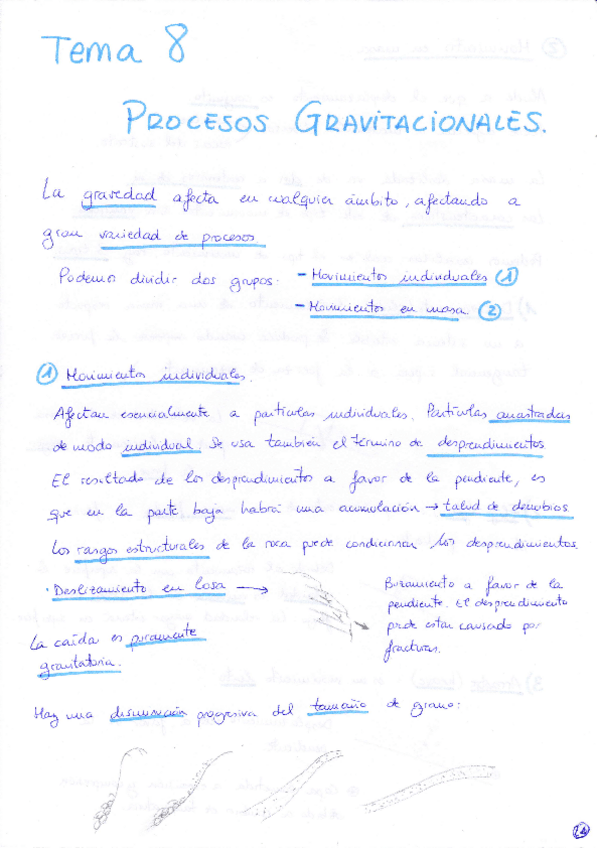 Tema 8
PROCESOS GRAVITACIONALES.
La gravedad afecta en cualquier ámbito, afectando a
gran variedad de procesos
Podemos dividir dos grupos. - Movimientos individuales (1)
- Movimientos en masa. (2)
(1) Movimientos individuales.
Afectan esencialmente a partículas individuales. Partículas arrastradas
de modo individual. Se usa también el término de desprendimientos
El resultado de los desprendimientos a favor de la pendiente, es
que en la parte baja habrá una acumulación → talud de derrubios.
Los rasgos estructurales de la roca puede condicionar los desprendimientos.
· Deslizamiento en losa →
Buzamiento a favor de la
pendiente. El desprendimiento
puede estar causado por
fracturas.
La caída es puramente
gravitatoria.
Hay una disminución progresiva del tamaño de grano: